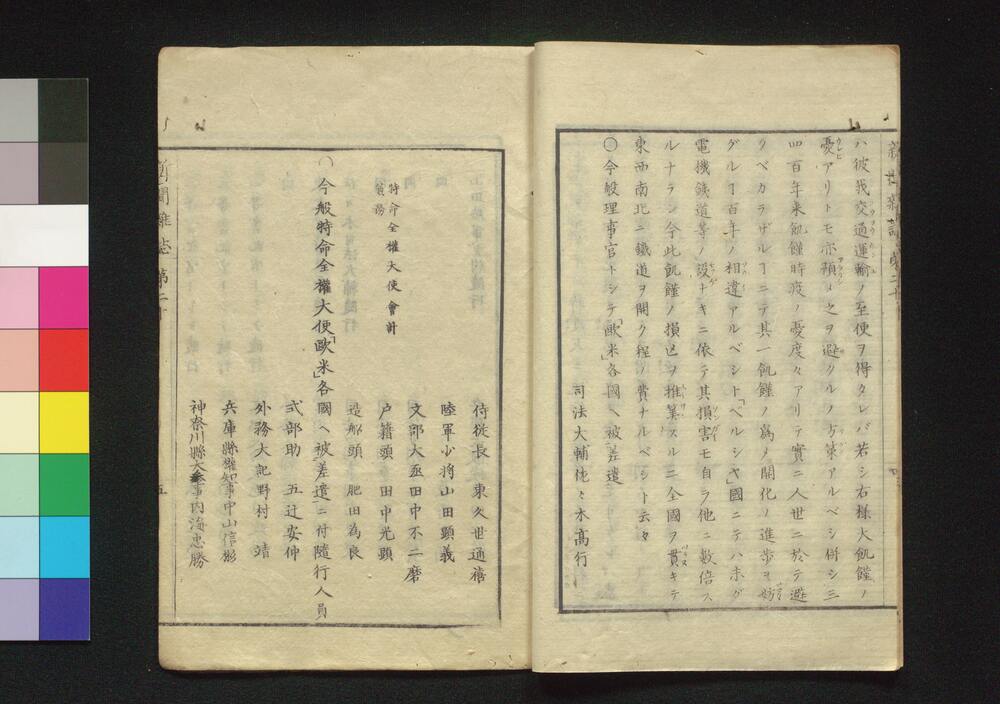 ハ彼我交通運輸ノ至便ヲ得タレバ若シ右様大飢饉ノ
憂アリトモ亦預メ之ヲ避クルノ方策アルベシ併シ三
四百年来飢饉時疫ノ憂度々アリテ實ニ人世ニ於テ避
クベカラザルヿニテ其一飢饉ノ為メ開化ノ進歩ヲ妨
グルヿ百年ノ相違アルベシト「ペルシヤ」國ニテハ未ダ
電機鐵道等ノ設ナキニ依テ其損害モ自ラ他ニ數倍ス
ルナラン今此飢饉ノ損亡ヲ推算スルニ全國ヲ貫キテ
東西南北ニ鐵道ヲ開ク程ノ費ナルベシト云々
〇今般理事官トシテ「歐米」各國ヘ被差遣
司法大輔佐々木高行
侍従長 東久世通禧
陸軍少将山田顕義
文部大丞田中不二磨
戸籍頭 田中光顕
特命全權大使會計
兼務
造船頭 肥田為良
〇今般特命全權大使「歐米」各國ヘ被差遣ニ付隨行人員
式部助 五辻安仲
外務大記野村 靖
兵庫縣權知事中山信彬
神奈川縣大参事内海忠勝
新聞雑誌 第二十
五